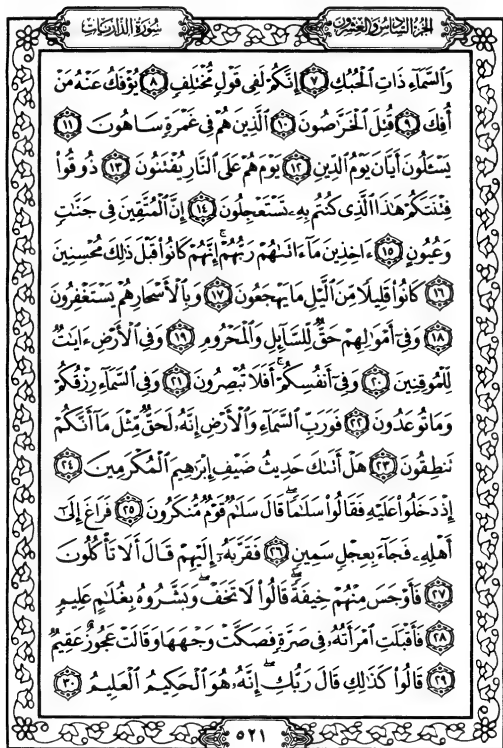 سُورَةُ الذَّارِيَات الجُزءُ السَّادِسُ وَالعِشرُون
وَٱلسَّمَآءِ ذَاتِ ٱلْحُبُكِ ٧ إِنَّكُمْ لَفِى قَوْلٍ مُّخْتَلِفٍ ٨ يُؤْفَكُ عَنْهُ مَنْ
أُفِكَ ٩ قُتِلَ ٱلْخَرَّٰصُونَ ١٠ ٱلَّذِينَ هُمْ فِى غَمْرَةٍ سَاهُونَ ١١
يَسْـَٔلُونَ أَيَّانَ يَوْمُ ٱلدِّينِ ١٢ يَوْمَ هُمْ عَلَى ٱلنَّارِ يُفْتَنُونَ ١٣ ذُوقُوا۟
فِتْنَتَكُمْ هَٰذَا ٱلَّذِى كُنتُم بِهِۦ تَسْتَعْجِلُونَ ١٤ إِنَّ ٱلْمُتَّقِينَ فِى جَنَّٰتٍ
وَعُيُونٍ ١٥ ءَاخِذِينَ مَآ ءَاتَىٰهُمْ رَبُّهُمْ ۚ إِنَّهُمْ كَانُوا۟ قَبْلَ ذَٰلِكَ مُحْسِنِينَ
١٦ كَانُوا۟ قَلِيلًا مِّنَ ٱلَّيْلِ مَا يَهْجَعُونَ ١٧ وَبِٱلْأَسْحَارِ هُمْ يَسْتَغْفِرُونَ
١٨ وَفِىٓ أَمْوَٰلِهِمْ حَقٌّ لِّلسَّآئِلِ وَٱلْمَحْرُومِ ١٩ وَفِى ٱلْأَرْضِ ءَايَٰتٌ
لِّلْمُوقِنِينَ ٢٠ وَفِىٓ أَنفُسِكُمْ ۚ أَفَلَا تُبْصِرُونَ ٢١ وَفِى ٱلسَّمَآءِ رِزْقُكُمْ
وَمَا تُوعَدُونَ ٢٢ فَوَرَبِّ ٱلسَّمَآءِ وَٱلْأَرْضِ إِنَّهُۥ لَحَقٌّ مِّثْلَ مَآ أَنَّكُمْ
تَنطِقُونَ ٢٣ هَلْ أَتَىٰكَ حَدِيثُ ضَيْفِ إِبْرَٰهِيمَ ٱلْمُكْرَمِينَ ٢٤
إِذْ دَخَلُوا۟ عَلَيْهِ فَقَالُوا۟ سَلَٰمًا ۖ قَالَ سَلَٰمٌ قَوْمٌ مُّنكَرُونَ ٢٥ فَرَاغَ إِلَىٰٓ
أَهْلِهِۦ فَجَآءَ بِعِجْلٍ سَمِينٍ ٢٦ فَقَرَّبَهُۥٓ إِلَيْهِمْ قَالَ أَلَا تَأْكُلُونَ
٢٧ فَأَوْجَسَ مِنْهُمْ خِيفَةً ۖ قَالُوا۟ لَا تَخَفْ ۖ وَبَشَّرُوهُ بِغُلَٰمٍ عَلِيمٍ
٢٨ فَأَقْبَلَتِ ٱمْرَأَتُهُۥ فِى صَرَّةٍ فَصَكَّتْ وَجْهَهَا وَقَالَتْ عَجُوزٌ عَقِيمٌ
٢٩ قَالُوا۟ كَذَٰلِكِ قَالَ رَبُّكِ ۖ إِنَّهُۥ هُوَ ٱلْحَكِيمُ ٱلْعَلِيمُ ٣٠
٥٢١